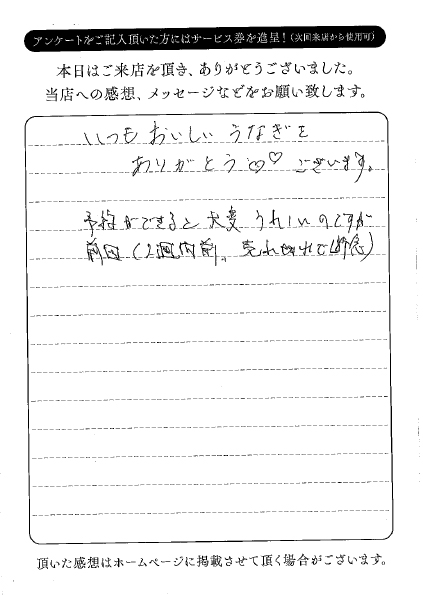 アンケートをご記入頂いた方にはサービス券を進呈！（次回来店から使用可）
本日はご来店を頂き、ありがとうございました。
当店への感想、メッセージなどをお願い致します。
いつもおいしいうなぎを
ありがとう♡♡ございます。
予約ができると大変うれしいのですが
前回（2週間前。売れ切れで断念）
頂いた感想はホームページに掲載させて頂く場合がございます。